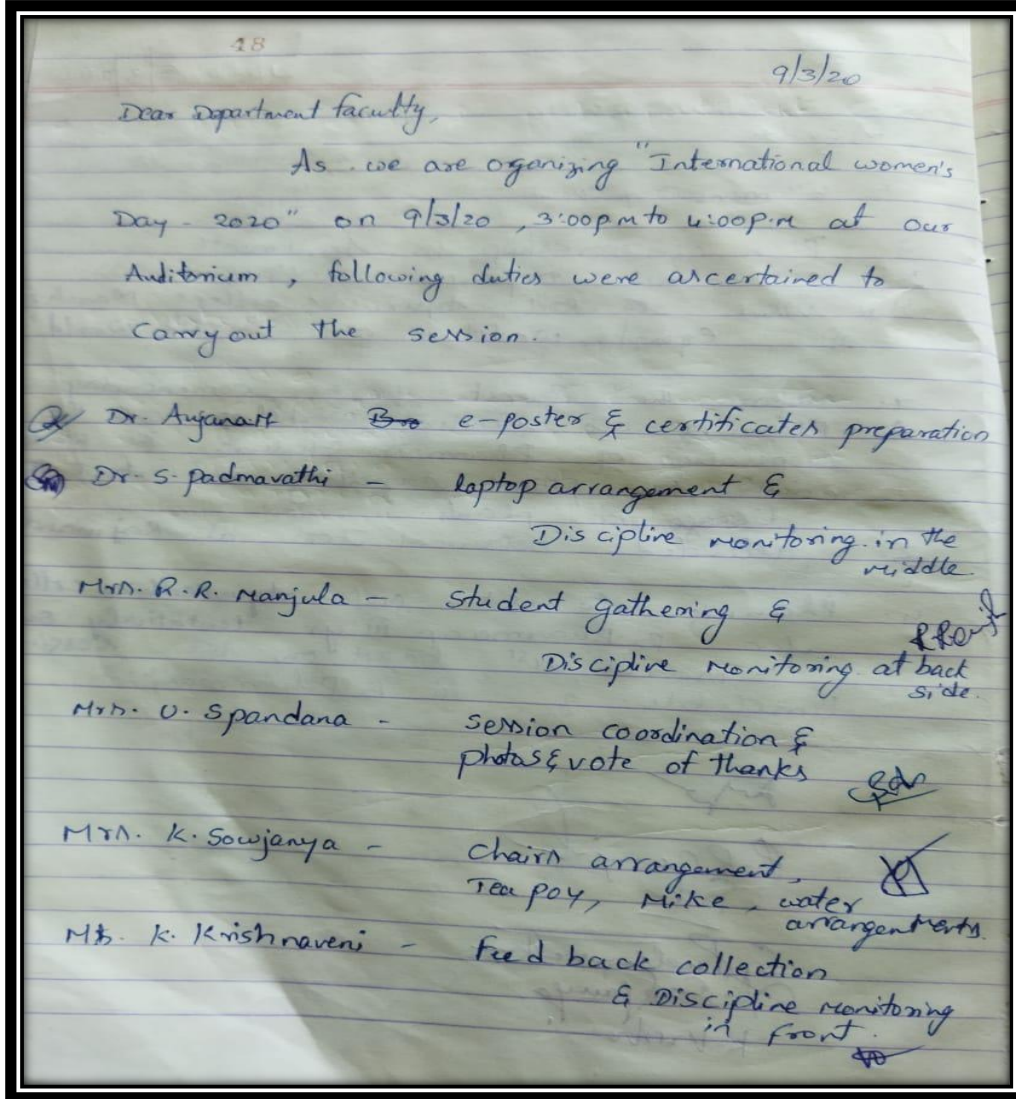 48
9/3/20
Dear Department faculty,
As we are oganizing "International women's
Day - 2020" on 9/3/20, 3:00p.m to 4:00p.m at our
Auditorium, following duties were ascertained to
Carryout the session.
Dr. e-poster & certificates preparation
Dr. S. Padmavathi - laptop arrangement &
Discipline monitoring in the
middle.
Mrs. R.R. Manjula - Student gathering &
Discipline monitoring at back
side.
Mrs. U. Spandana - Session coordination &
photos & vote of thanks
Mrs. K. Sowjanya - Chairs arrangement,
Tea poy, Mike, water
arrangements.
Ms. K. Krishnaveni - Feed back collection
& Discipline monitoring
in front.